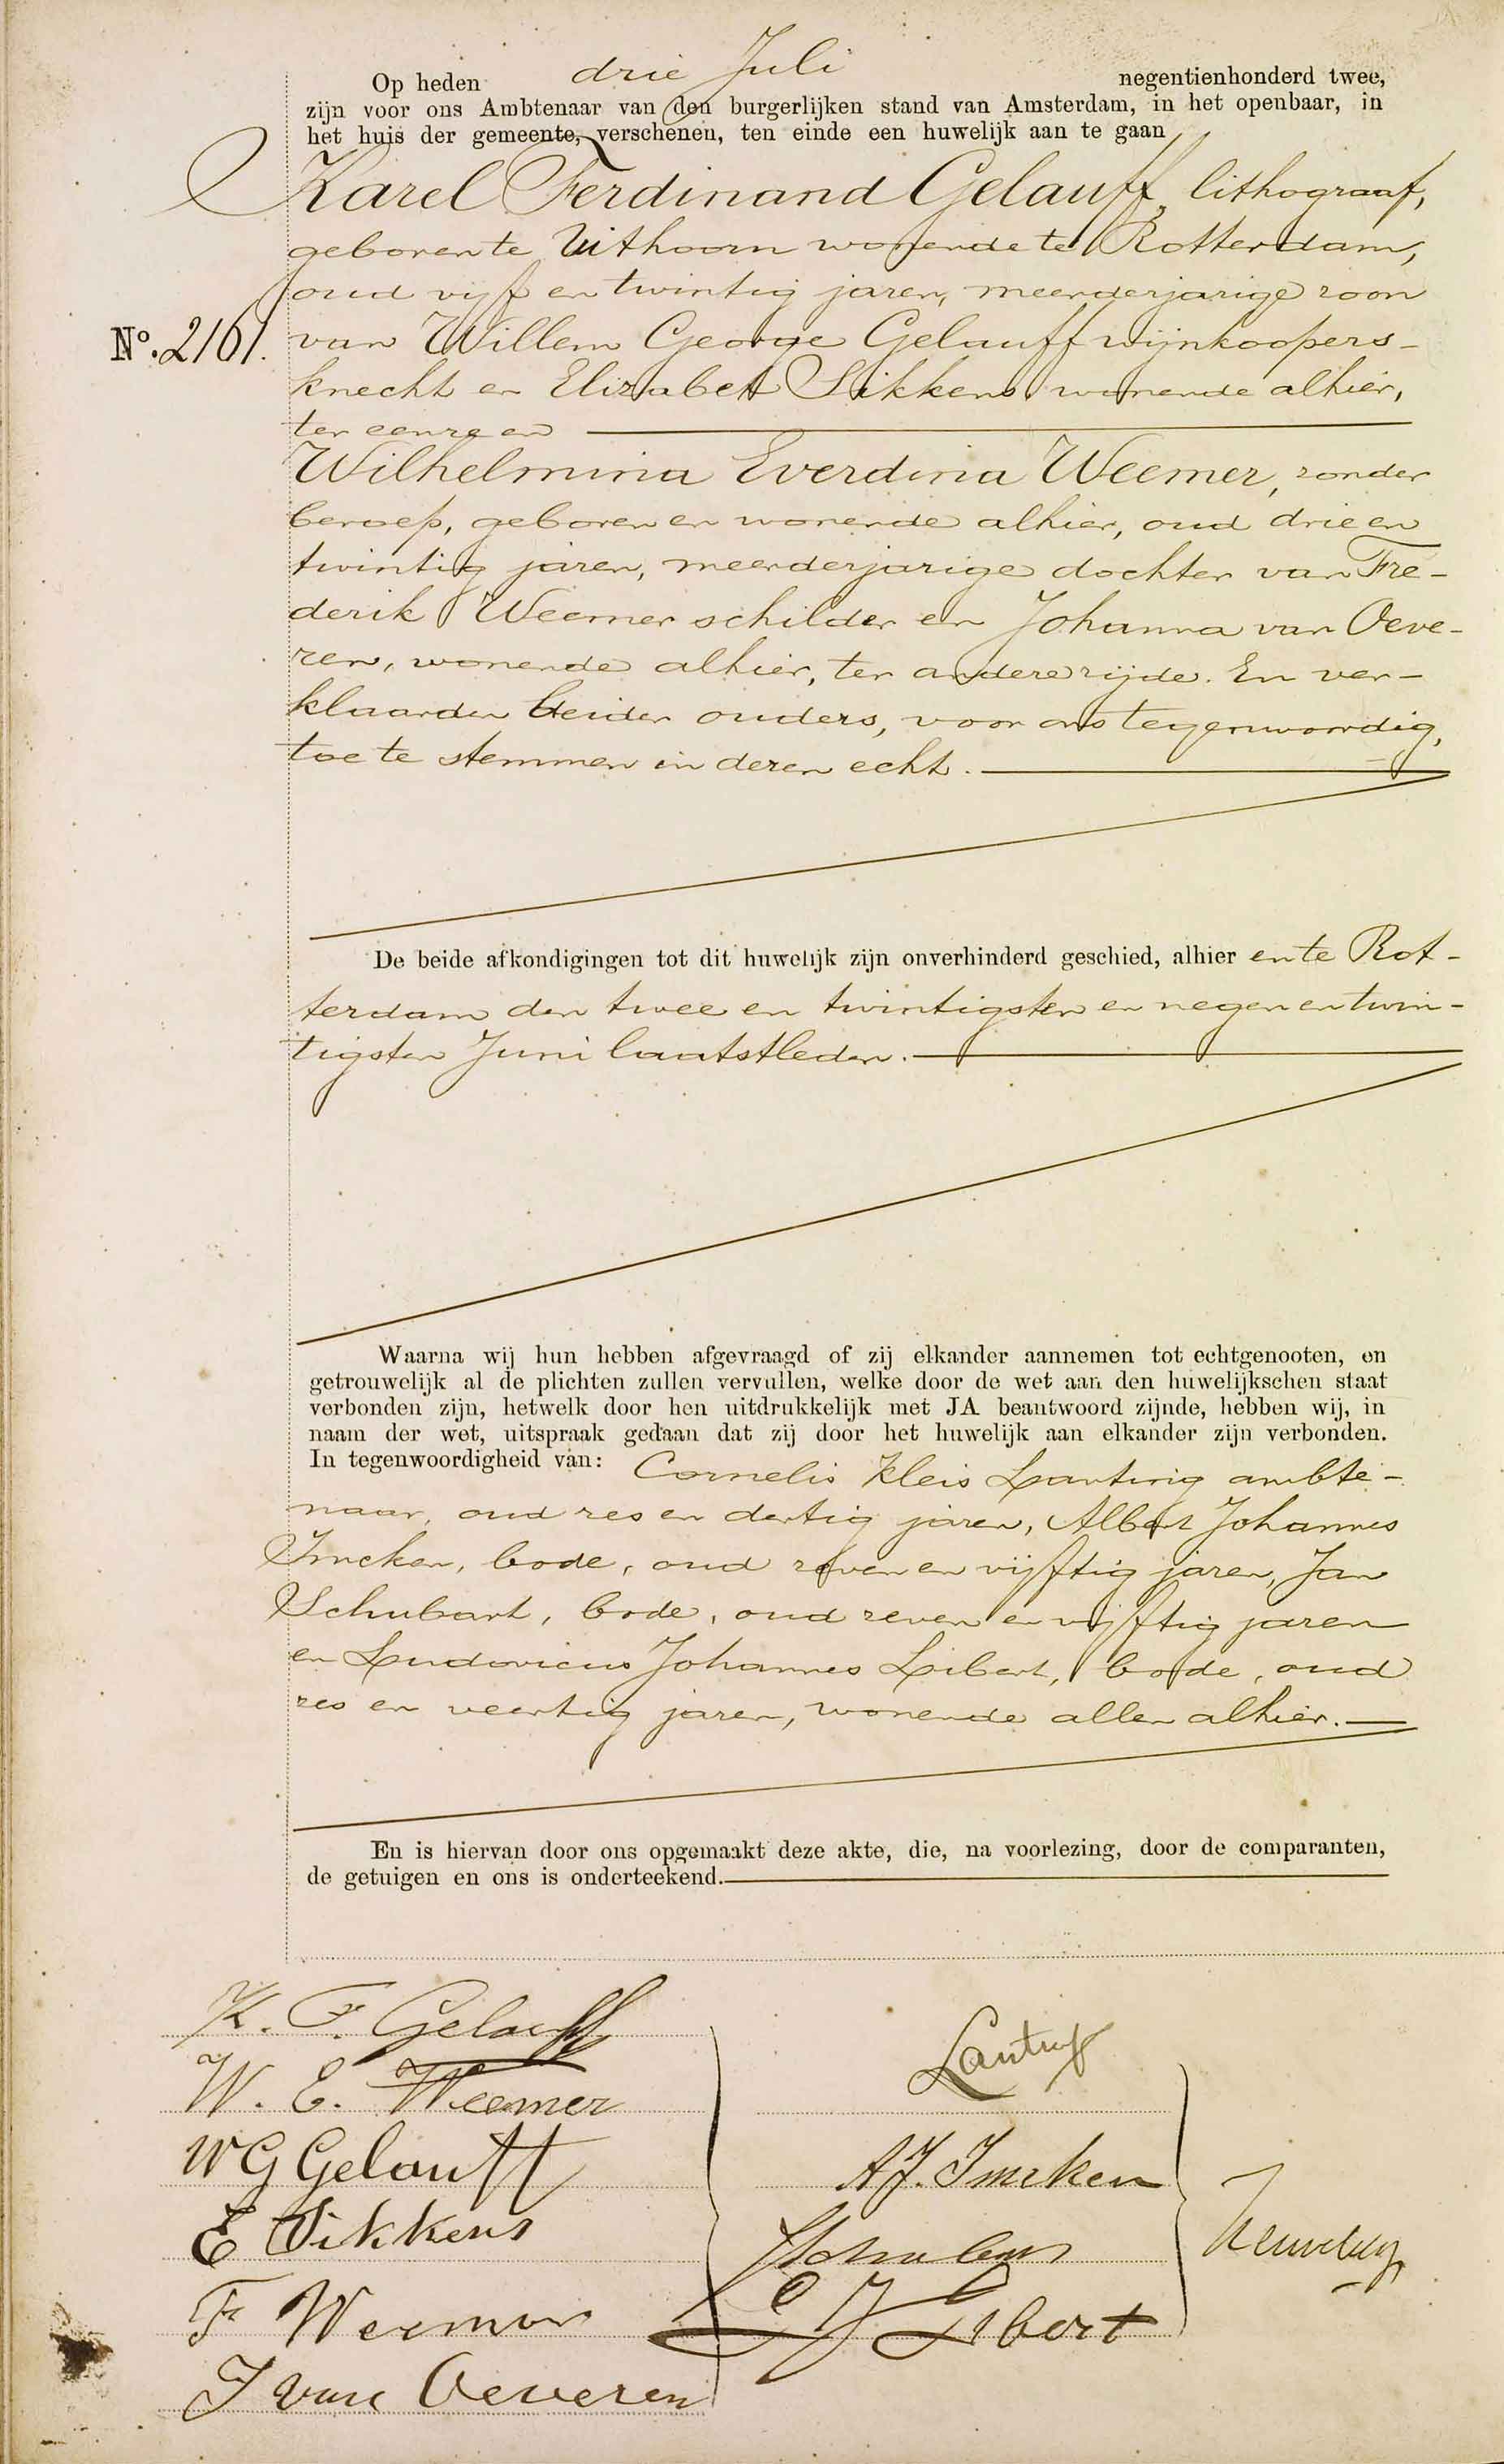 Op heden drie Juli negentienhonderd twee,
zijn voor ons Ambtenaar van den burgerlijken stand van Amsterdam, in het openbaar, in
het huis der gemeente, verschenen, ten einde een huwelijk aan te gaan
Karel Ferdinand Gelauff, lithograaf,
geboren te Uithoorn wonende te Rotterdam,
oud vijf en twintig jaren, meerderjarige zoon
No. 2161. van Willem George Gelauff wijnkoopers-
knecht en Elizabeth Sikkens wonende alhier,
ter eenre en
Wilhelmina Everdina Weemer, zonder
beroep, geboren en wonende alhier, oud drie en
twintig jaren, meerderjarige dochter van Fre-
derik Weemer schilder en Johanna van Oeve-
ren, wonende alhier, ter andere zijde. En ver-
klaarden beider ouders, voor ons tegenwoordig,
toe te stemmen in dezen echt.
De beide afkondigingen tot dit huwelijk zijn onverhinderd geschied, alhier en te Rot-
terdam den twee en twintigsten en negen en twin-
tigsten Juni laatstleden.
Waarna wij hun hebben afgevraagd of zij elkander aannemen tot echtgenooten, en
getrouwelijk al de plichten zullen vervullen, welke door de wet aan den huwelijkschen staat
verbonden zijn, hetwelk door hen uitdrukkelijk met JA beantwoord zijnde, hebben wij, in
naam der wet, uitspraak gedaan dat zij door het huwelijk aan elkander zijn verbonden.
In tegenwoordigheid van: Cornelis Kleis Lantinig ambte-
naar, oud zes en dertig jaren, Albert Johannes
Imeken, bode, oud zeven en vijftig jaren, Jan
Schubart, bode, oud zeven en vijftig jaren
en Ludovicus Johannes Libert, bode, oud
zes en veertig jaren, wonende allen alhier.
En is hiervan door ons opgemaakt deze akte, die, na voorlezing, door de comparanten,
de getuigen en ons is onderteekend.
K. F. Gelauff
W. E. Weemer
W G Gelauff
E Sikkens
F Weemer
J van Oeveren
A J. Imeken
L J Libert